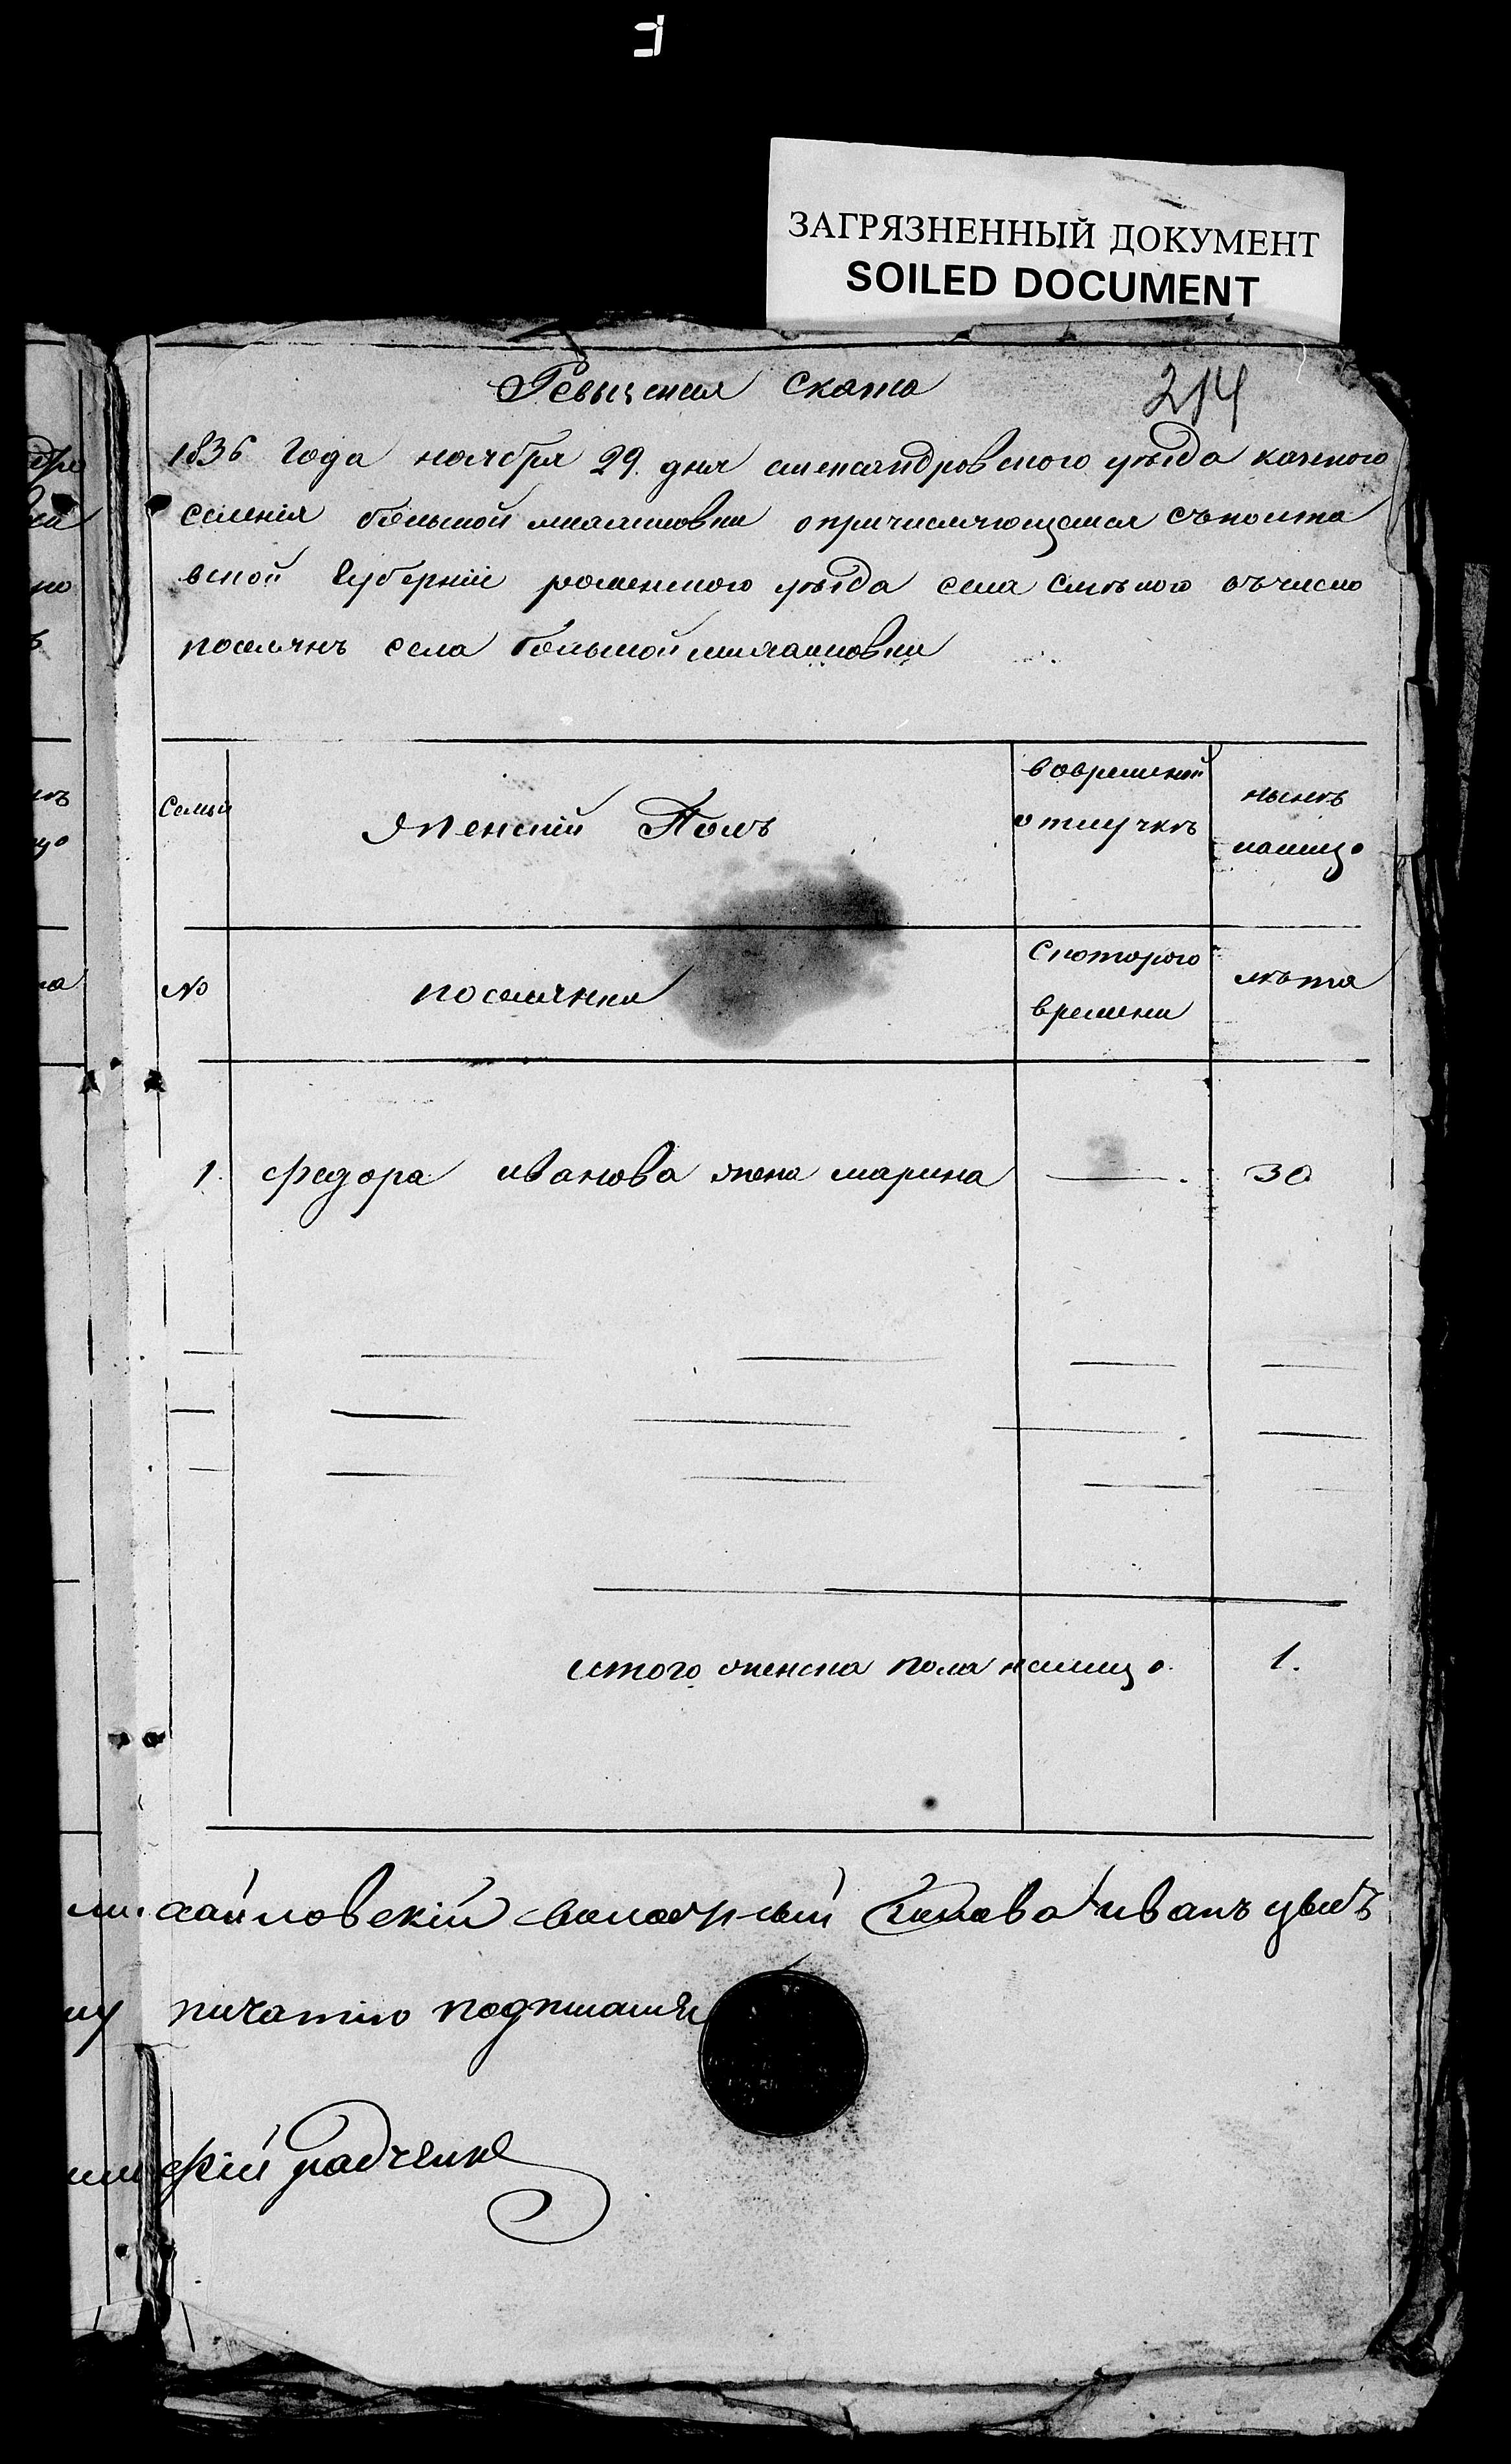 ЗАГРЯЗНЕННЫЙ ДОКУМЕНТ
SOILED DOCUMENT
Ревизская сказка
214
1836 года ноября 29. дня александровского уезда казенного
селения большой михайловки опричисляющемся съполта
вской губернии роменского уезда села смелого въчисло
поселянъ села большой михайловки
Семьи
женский Полъ
вовременной
отлучкѣ
нынѣ
налицо
№
поселянки
Скоторого
времени
лѣта
1. федора иванова жена марина 30
итого женска пола налицо. 1.
михайловский волостный голова иванъ
печатию подписался
радченко